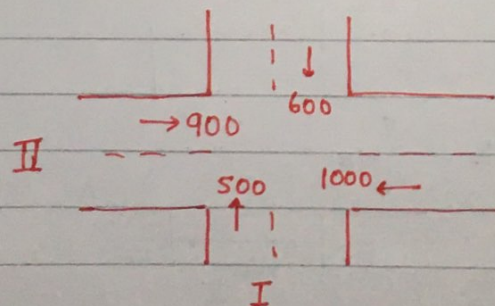 ↓
600
→ 900
II
500
1000 ←
↑
I